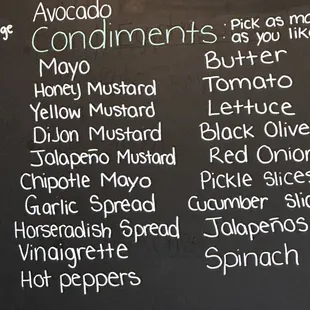 Avocado
Condiments: Pick as
as you
Mayo
Honey Mustard
Yellow Mustard
DiJon Mustard
Jalapeño Mustard
Chipotle Mayo
Garlic Spread
Horseradish Spread
Vinaigrette
Hot peppers
Butter
Tomato
Lettuce
Black Olive
Red Onion
Pickle Slices
Cucumber
Jalapeños
Spinach